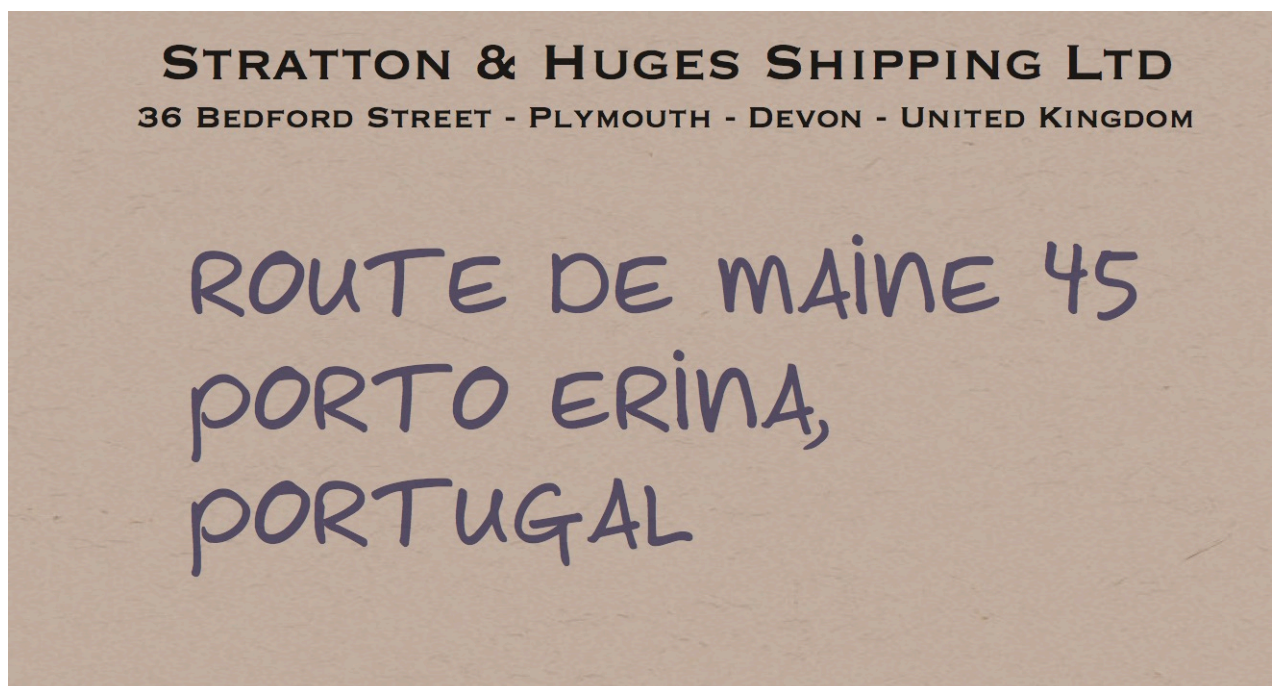 STRATTON & HUGES SHIPPING LTD
36 BEDFORD STREET - PLYMOUTH - DEVON - UNITED KINGDOM
ROUTE DE MAINE 45
PORTO ERINA,
PORTUGAL